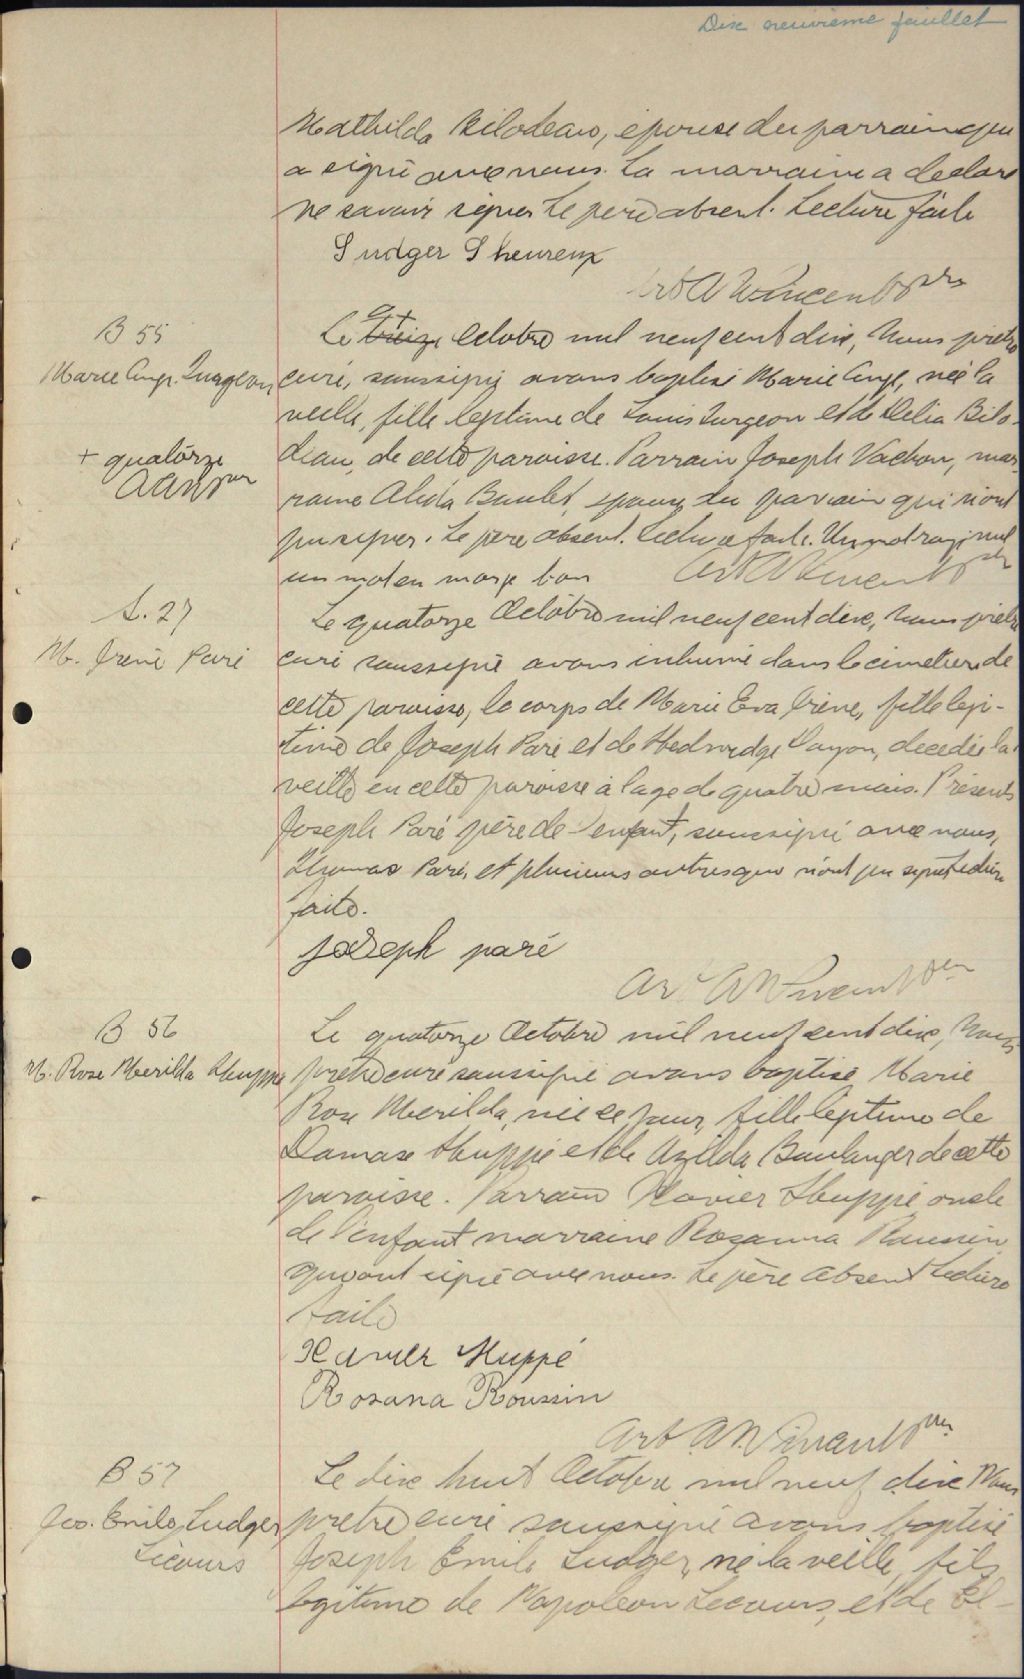 Dix neuvième feuillet
Mathilda Bilodeau, épouse du parrain qui
a signé avec nous. La marraine a déclaré
ne savoir signer Le père absent. Lecture faite
Ludger Lheureux
Art A Vincent ptre
B 55
Marie Ange Turgeon
+ quatorze
AAV ptre
+
Le treize Octobre mil neuf cent dix, Nous prêtre
curé, soussigné avons baptisé Marie Ange, née la
veille, fille légitime de Louis Turgeon et de Delia Bilo-
deau, de cette paroisse. Parrain Joseph Vachon, mar-
raine Alida Boulet, épouse du parrain qui n'ont
pu signer. Le père absent. Lecture faite. Un mot rayé nul
un mot en marge bon Art A Vincent ptre
S. 27
M. Irène Paré
Le quatorze Octobre mil neuf cent dix, Nous prêtre
curé soussigné avons inhumé dans le cimetière de
cette paroisse, le corps de Marie Eva Irène, fille légi-
time de Joseph Paré et de Hedwidge Doyon, décédée la
veille en cette paroisse à l'age de quatre mois. Présents
Joseph Paré père de l'enfant, soussigné avec nous,
Thomas Paré, et plusieurs autres qui n'ont pu signer Lecture
faite.
joseph paré
Art A Vincent ptre
B 56
M. Rose Merilda Huppé
Le quatorze Octobre mil neuf cent dix, Nous
prêtre curé soussigné avons baptisé Marie
Rose Merilda, née ce jour, fille légitime de
Damase Huppé et de Azilda Boulanger de cette
paroisse. Parrain Xavier Huppé oncle
de l'enfant marraine Rosanna Roussin
qui ont signé avec nous. Le père absent Lecture
faite
Xavier Huppé
Rosana Roussin
Art. A. Vincent ptre
B 57
Jos. Emile Ludger
Lecours
Le dix huit Octobre mil neuf dix Nous
prêtre curé soussigné avons baptisé
Joseph Emile Ludger, né la veille, fils
légitime de Napoléon Lecours, et de El-